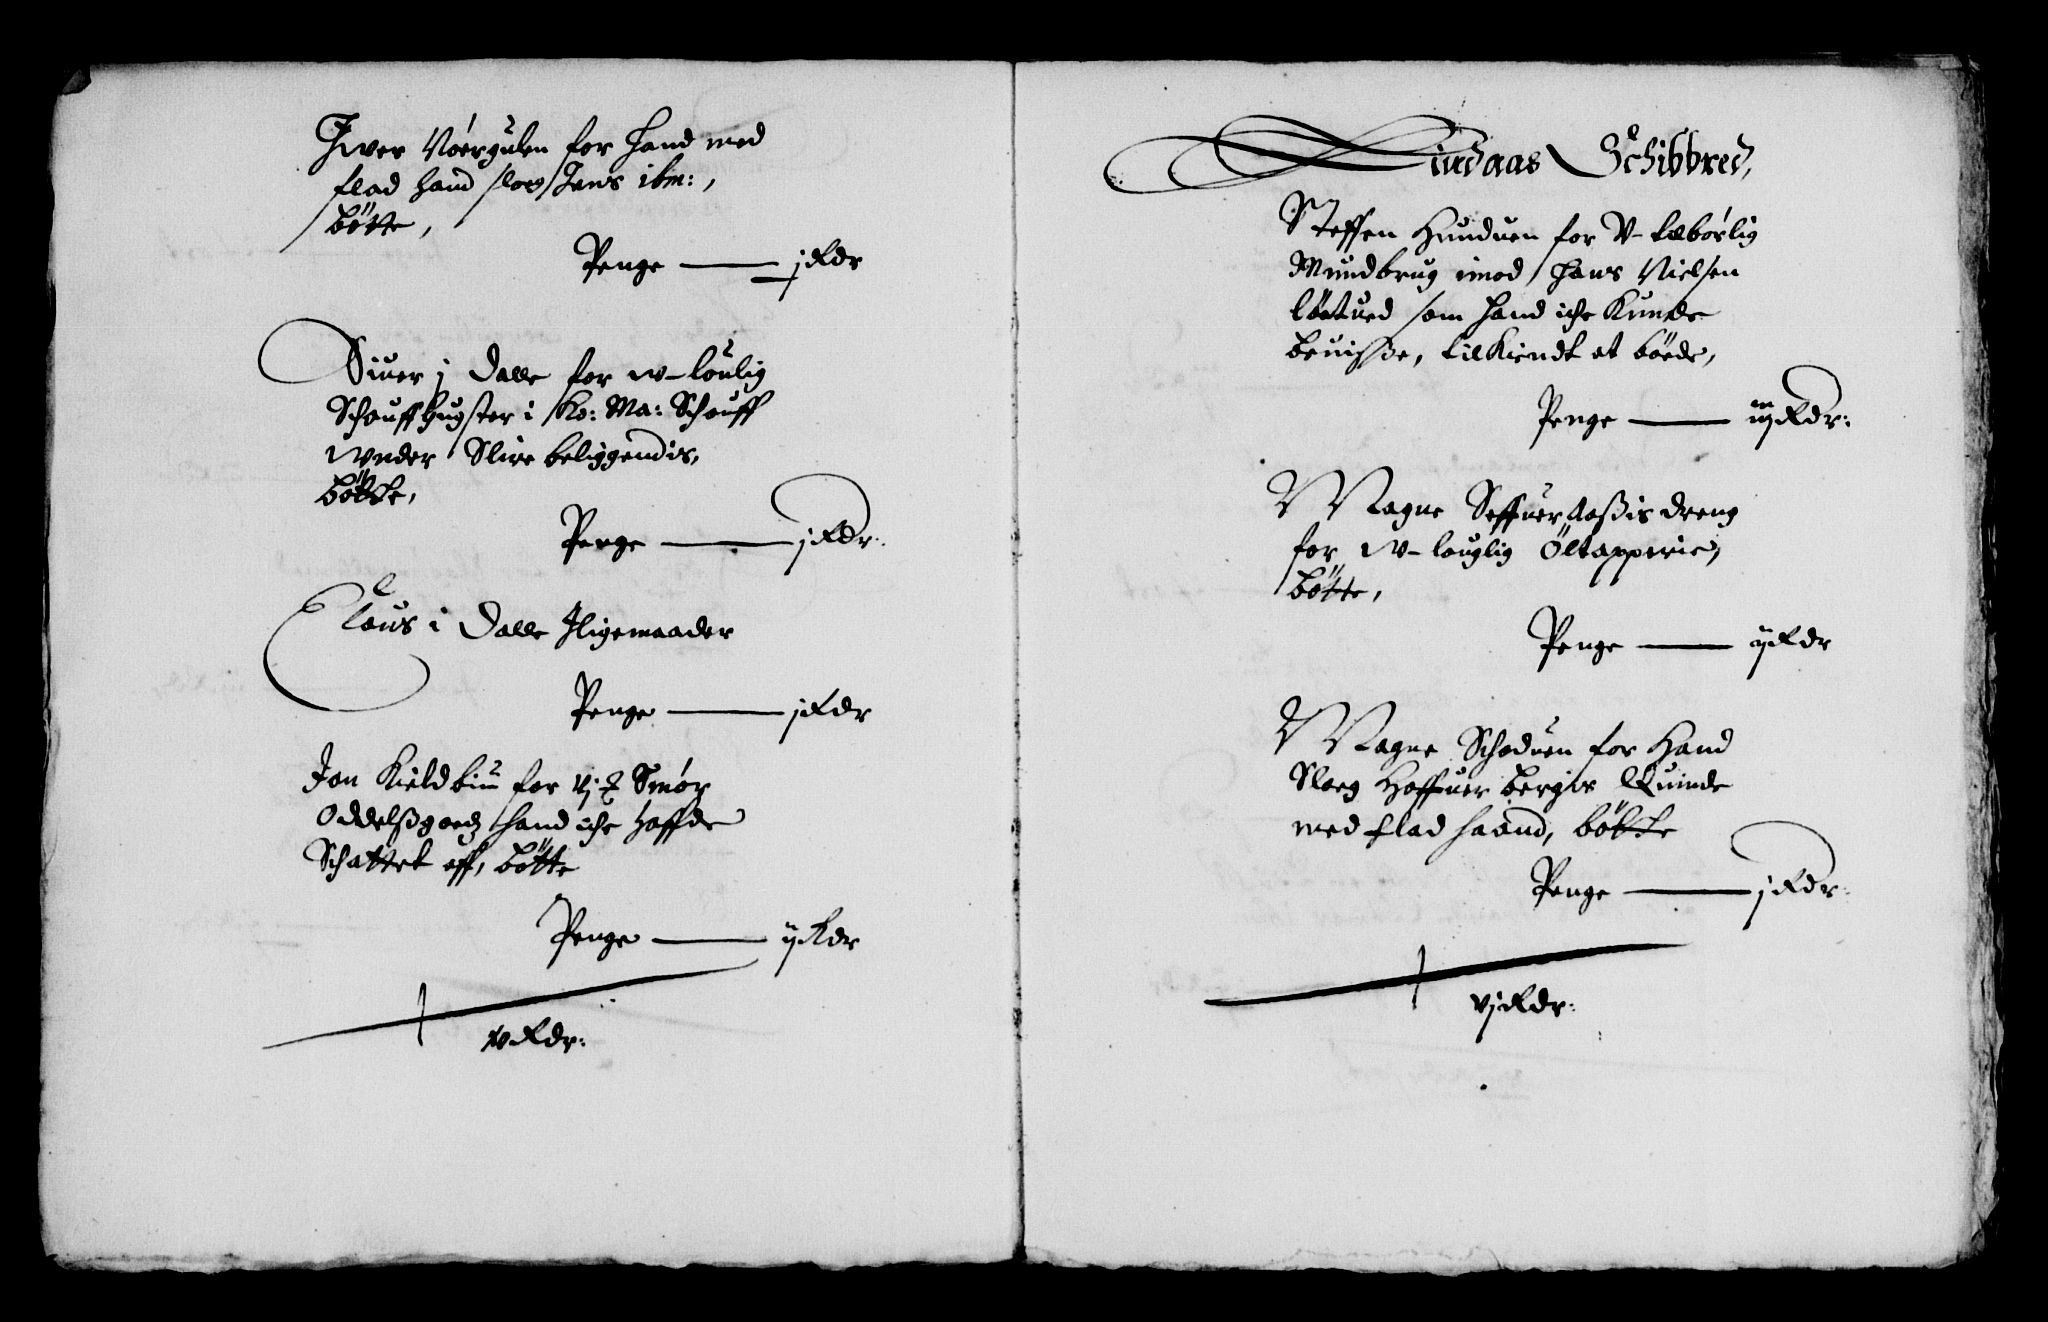 Iver Nøergulen for hand med
flad hand slog Jens ibm:,
bötte,
Penge — j Rdr
Siuer j Dalle for w-loulig
Schouffhugster i Ko: Ma: Schouff
wnder Slire beliggendis,
bötte,
Penge — j Rdr:
Claus i Dalle Iligemaader
Penge — j Rdr
Jon Kieldbiu for vj Smör
Oddelßgodz hand iche haffde
Schattet aff, bötte
Penge — ij Rdr
v Rdr:
Lindaas Schibbred,
Steffen Hunduen for V-tilbørlig
Mundbrug imod Hans Nielsen
som hand iche Kunde
beuisße, tilkiendt at böede,
Penge — iij Rdr:
Magne dreng
for w-louglig Öltapperie,
bötte,
Penge — ij Rdr
Magne Schoduen for Hand
Sloeg Haffuer bergis Quinde
med flad haand, bötte
Penge — j Rdr:
vj Rdr: